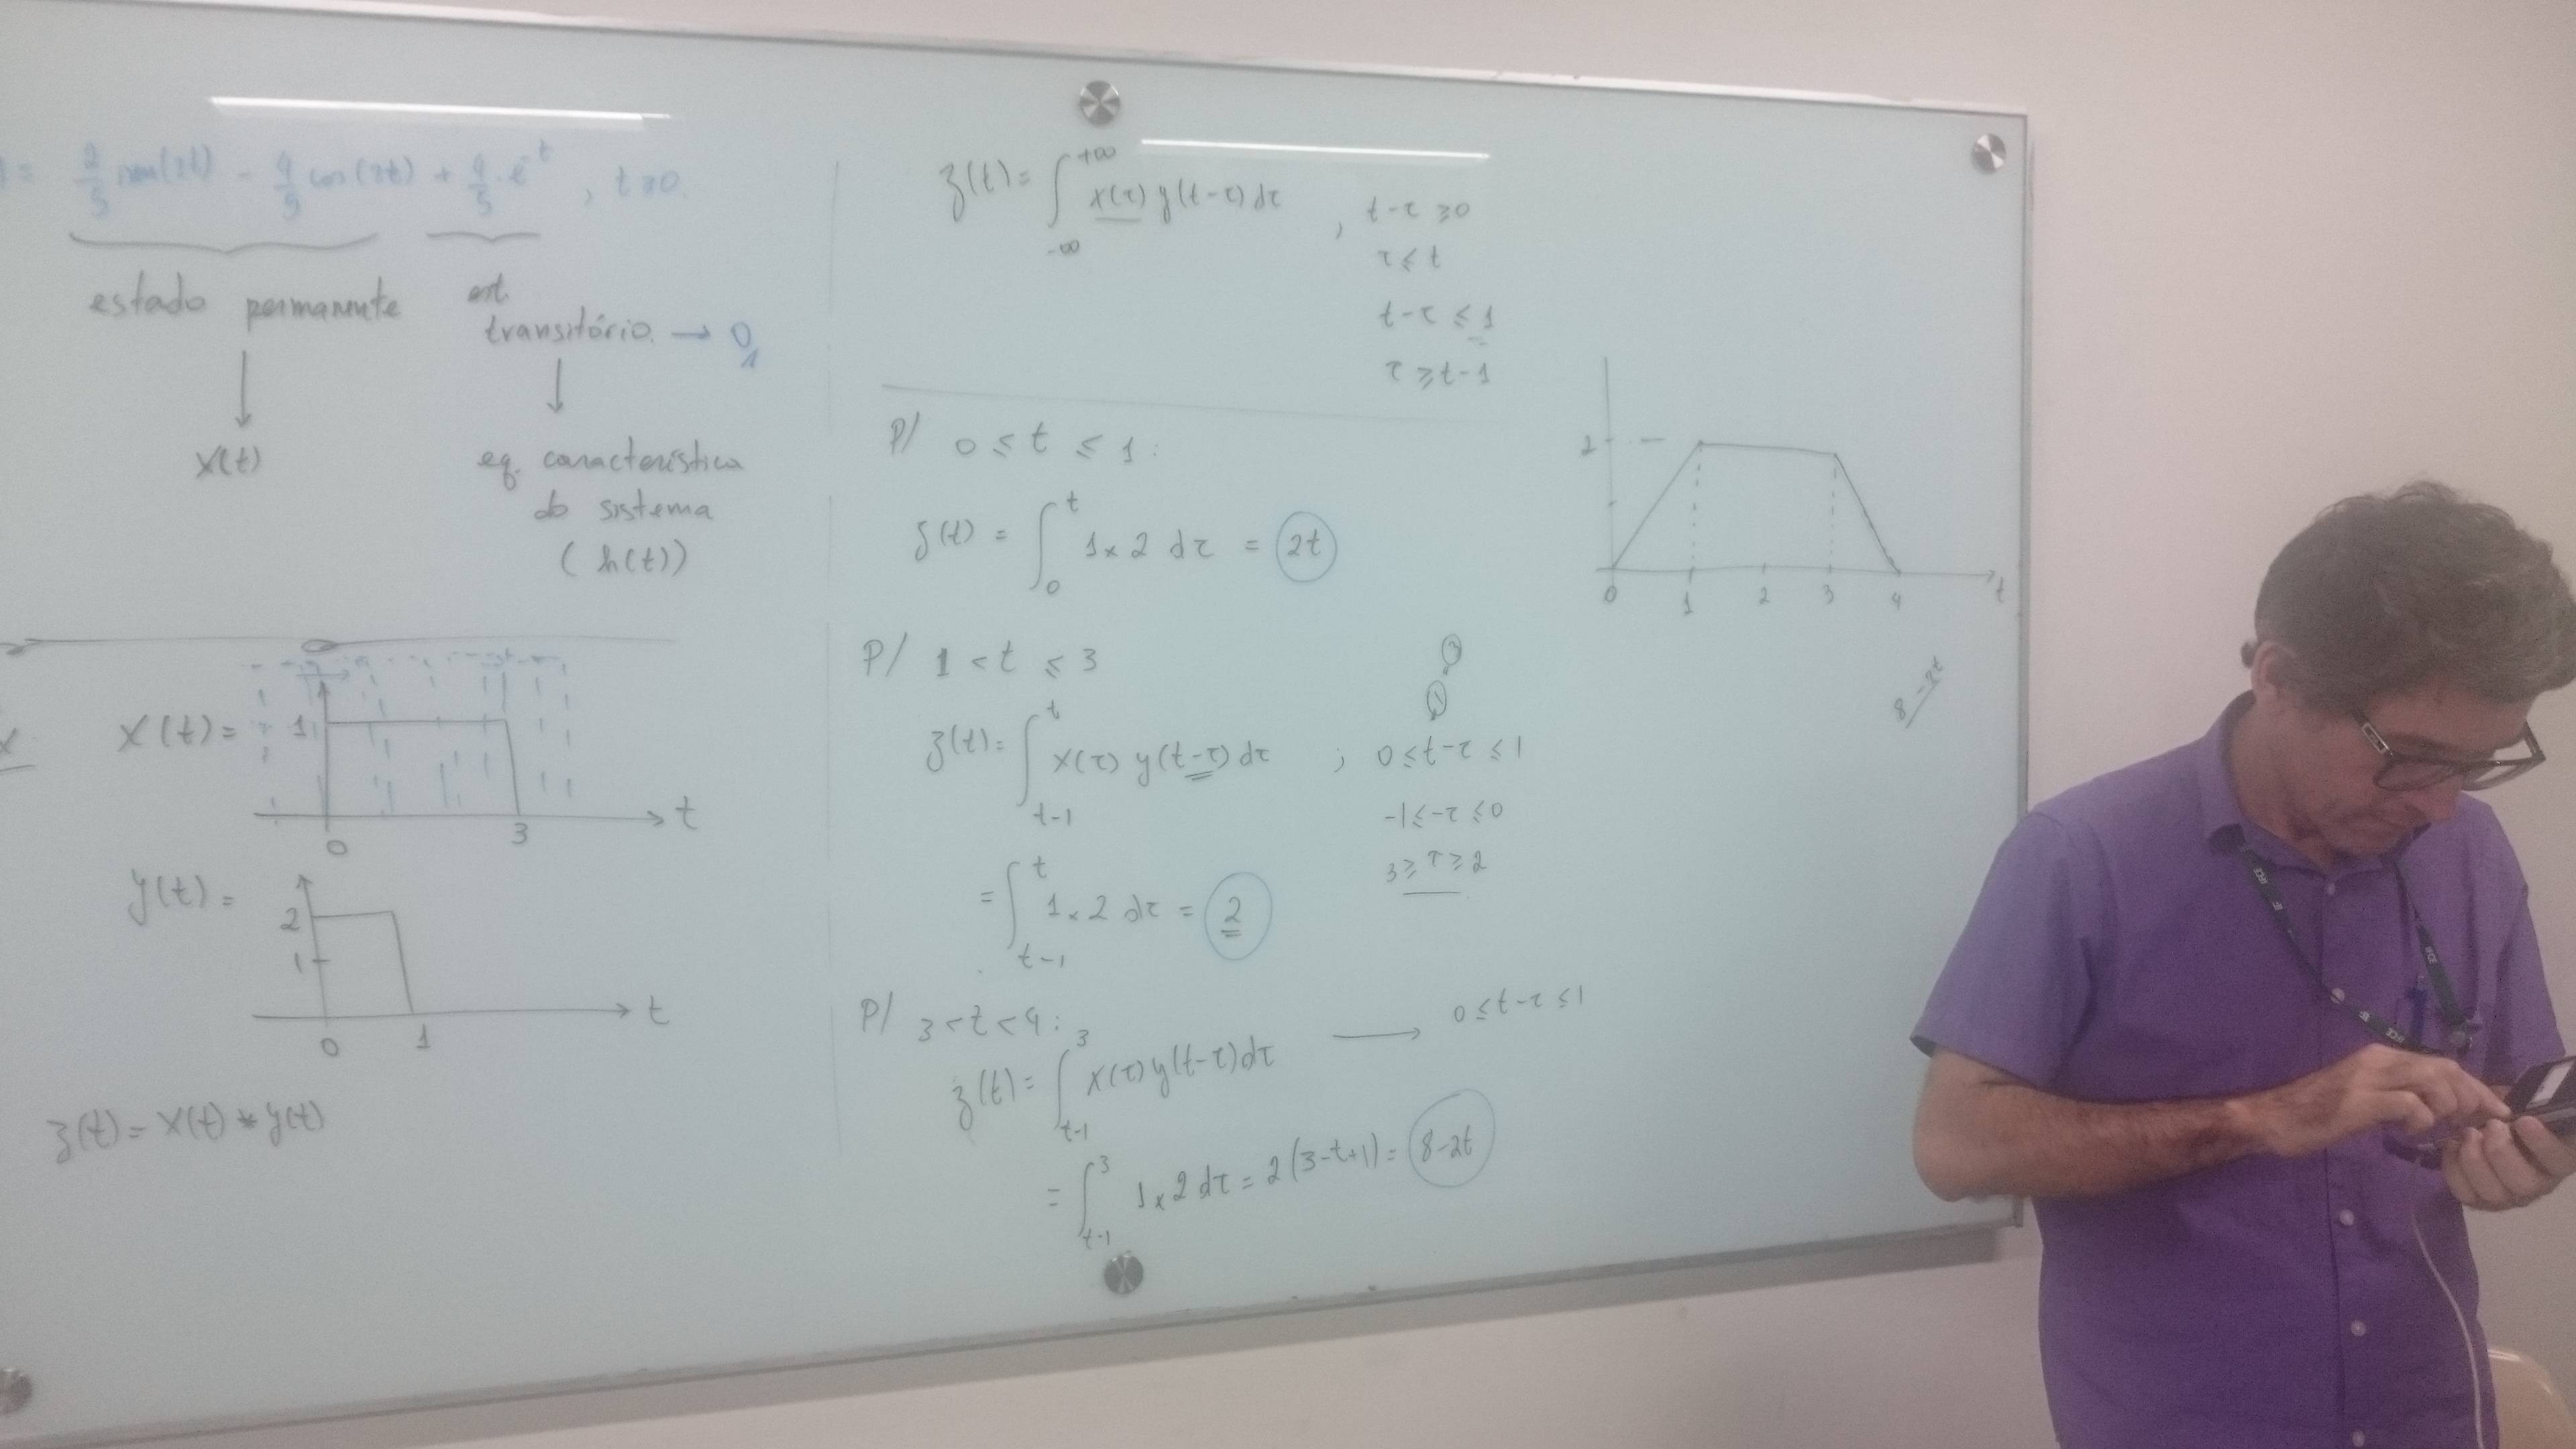 = 2/5 sen(2t) - 4/5 cos(2t) + 4/5 · e^-t , t≥0.
estado permanente
est. transitório. → 0
x(t)
eq. característica
do sistema
(h(t))
x(t)=
1
0
3
t
y(t)=
2
1
0
1
t
z(t) = x(t) * y(t)
z(t) = ∫_-∞^+∞ x(τ) y(t-τ) dτ , t-τ ≥0
τ≤t
t-τ ≤ 1
τ ≥ t-1
P/ 0 ≤ t ≤ 1:
z(t) = ∫_0^t 1×2 dτ = 2t
P/ 1 < t ≤ 3
z(t) = ∫_t-1^t x(τ) y(t-τ) dτ ; 0≤t-τ ≤1
-1≤-τ ≤0
3≥τ≥2
= ∫_t-1^t 1×2 dτ = 2
P/ 3<t<4:
z(t) = ∫_t-1^3 x(τ) y(t-τ) dτ → 0≤t-τ≤1
= ∫_t-1^3 1×2 dτ = 2(3-t+1) = 8-2t
2
0 1 2 3 4 t
8-2t
IFCE
IFCE